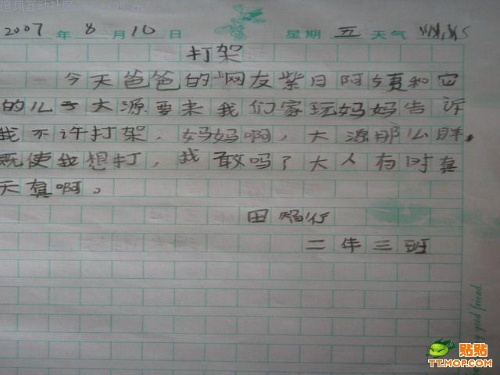 2007 年 8 月 10 日 星期 五 天气
打架
今天爸爸的网友紫日阿和它
的儿子大源要来我们家玩妈妈告诉
我不许打架，妈妈啊，大源那么胖，
既使我想打，我敢吗？大人有时真
天真啊。
田
二年三班
good friend
贴贴
TT.MOP.COM